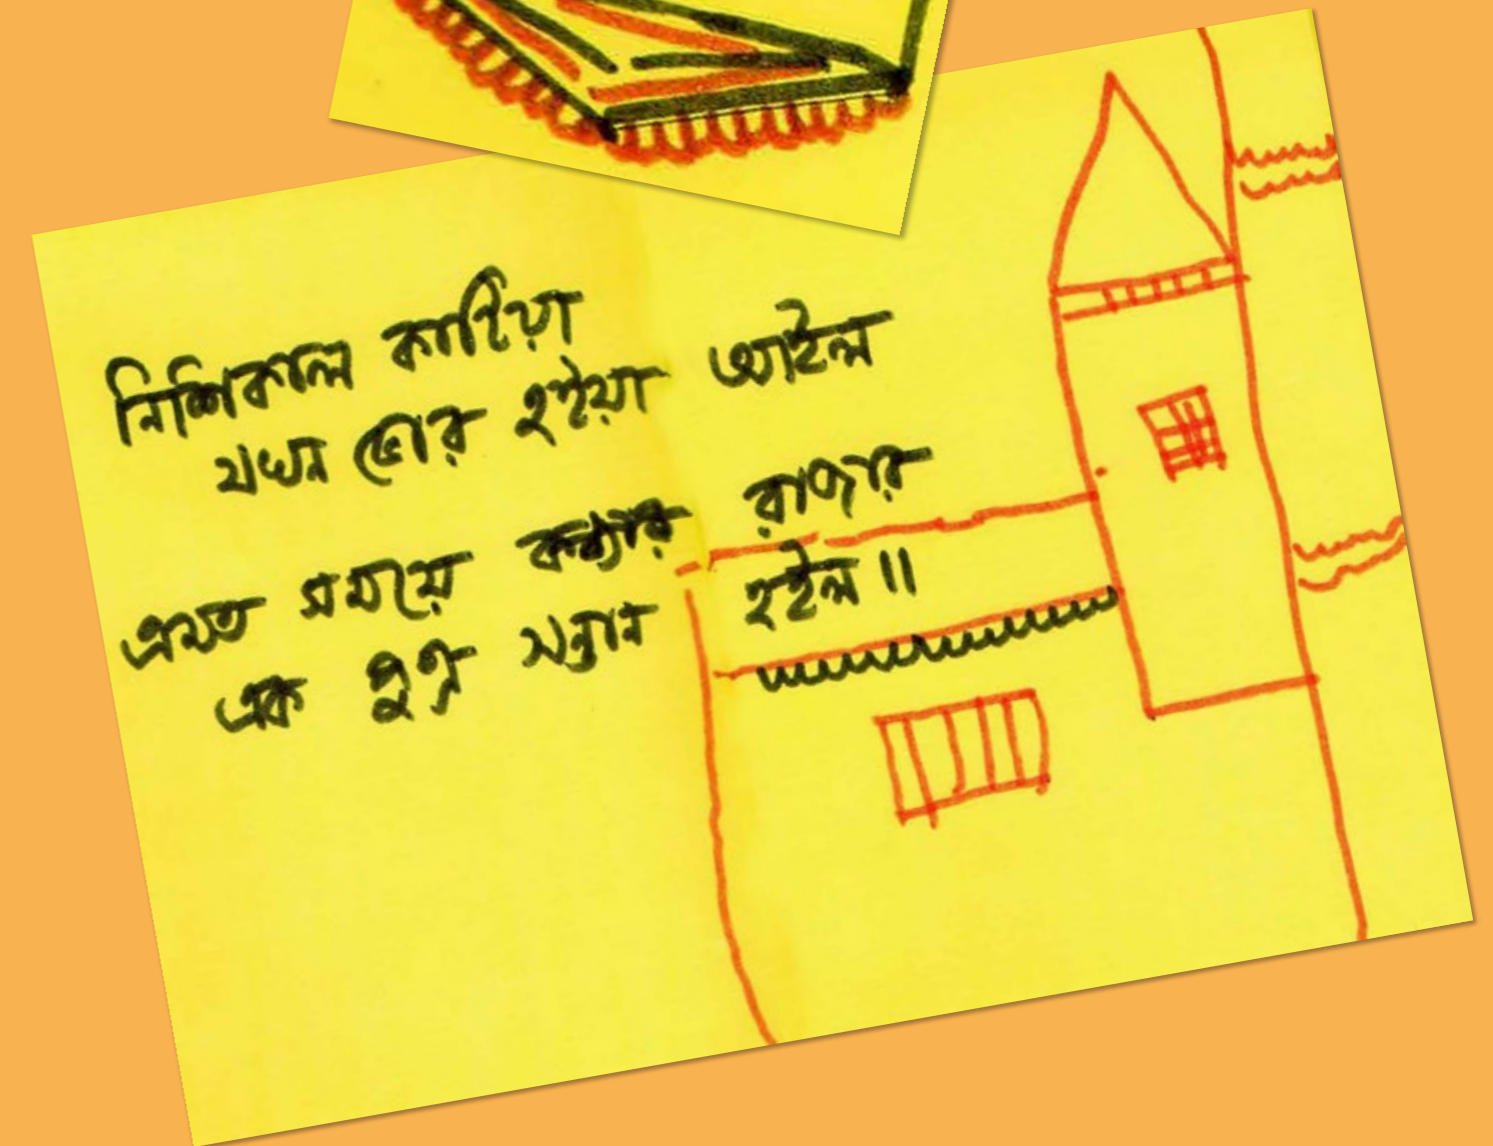 নিশিকাল কাটিয়া
যখন ভোর হইয়া আইল
এমত সময়ে কন্যার রাজার
এক পুত্র সন্তান হইল॥